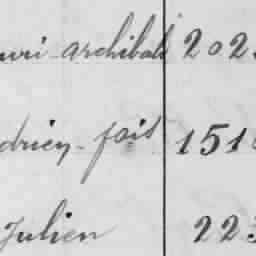 uri archibald 202
drien fait 151
Julien 22